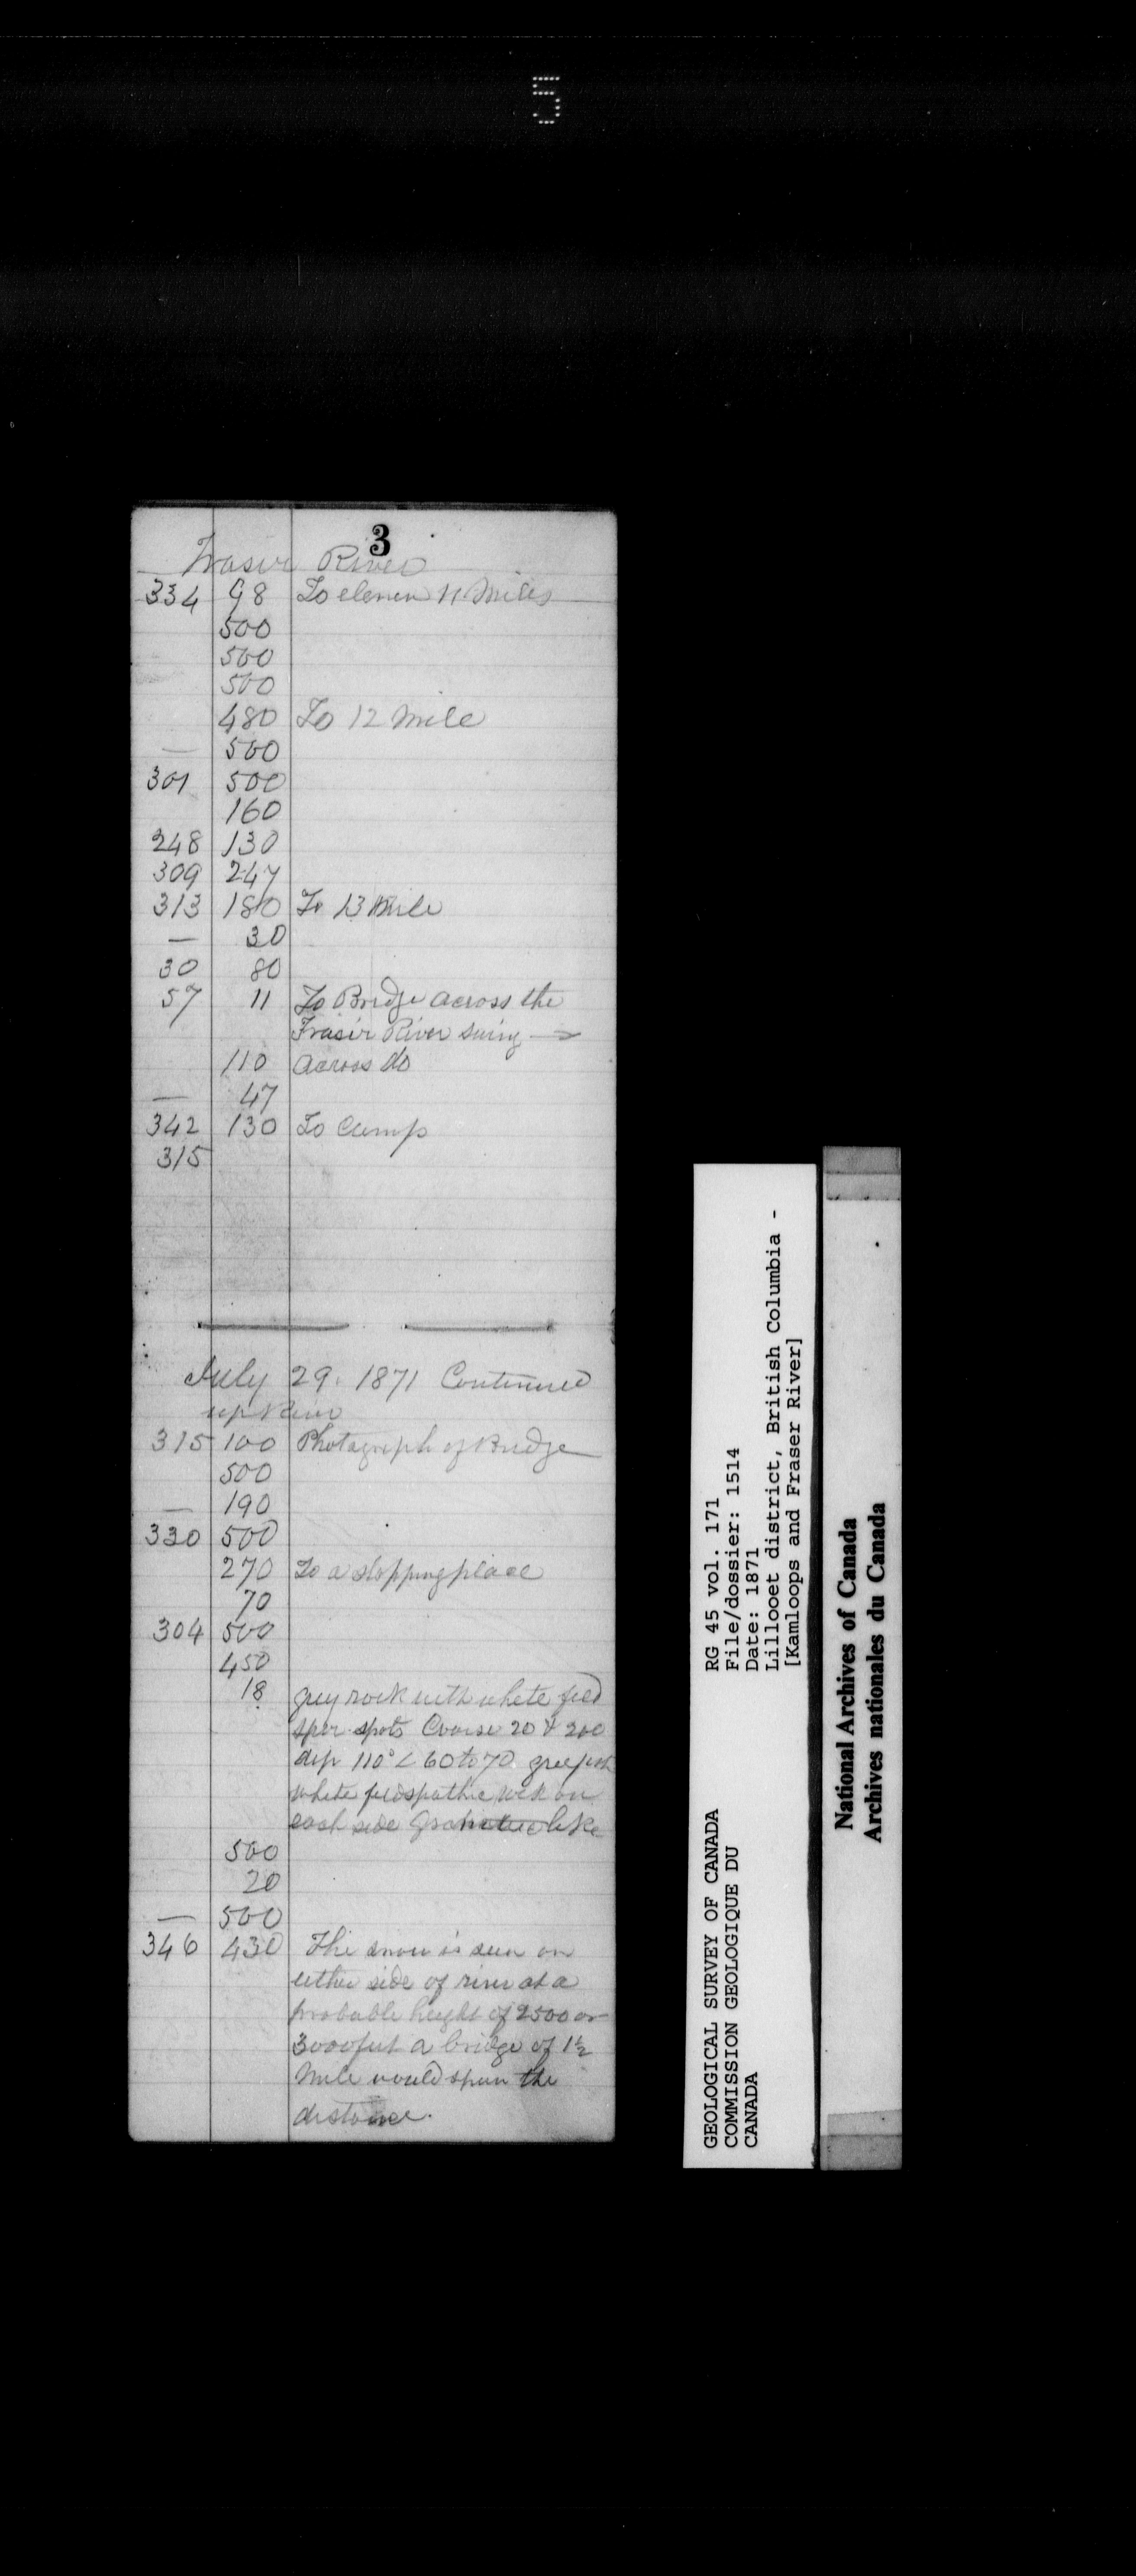 5
3
Frasir River
334 98 To eleven 11 Miles
500
500
500
480 To 12 Mile
— 500
301 500
160
248 130
309 247
313 180 To 13 Mile
— 30
30 80
57 11 To Bridge across the
Frasir River swing
110 across do
— 47
342 130 To Camp
315
July 29. 1871 Continued
up River
315 100 Photograph of Bridge
500
— 190
330 500
270 To a stopping place
70
304 500
450
18 grey rock with white feld
spar spots Course 20 & 200
dip 110° < 60 to 70
white feldspathic rock on
each side like
500
20
— 500
346 430 The snow is seen on
either side of river at a
probable height of 2500 or
3000 feet a bridge of 1½
Mile would span the
distance.
GEOLOGICAL SURVEY OF CANADA RG 45 vol. 171
COMMISSION GEOLOGIQUE DU File/dossier: 1514
CANADA Date: 1871
Lillooet district, British Columbia -
[Kamloops and Fraser River]
National Archives of Canada
Archives nationales du Canada